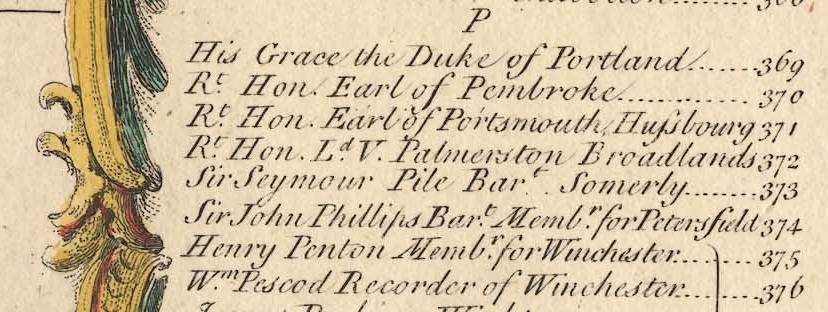 P
His Grace the Duke of Portland.......369
Rt. Hon. Earl of Pembroke..............370
Rt. Hon. Earl of Portsmouth, Hußbourg 371
Rt. Hon. Ld. V. Palmerston Broadlands 372
Sir Seymour Pile Bart. Somerly........373
Sir John Phillips Bart. Membr. for Petersfield 374
Henry Penton Membr. for Winchester.......375
Wm. Pescod Recorder of Winchester.......376